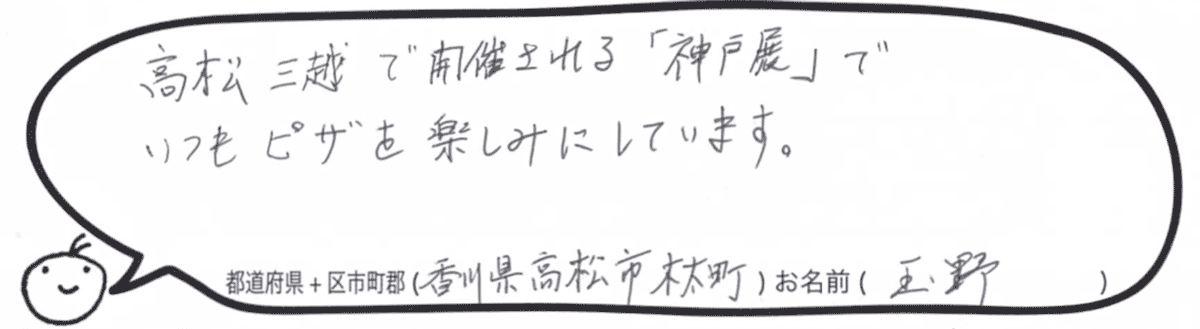 高松三越で開催される「神戸展」で
いつもピザを楽しみにしています。
都道府県+区市町郡(香川県高松市木太町)お名前(玉野)